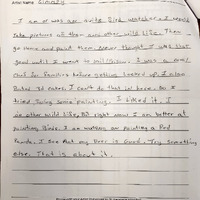 Artist Name: Jimmy
I am or was an avite Bird watcher. I would
take picture of them and other wild life. Then
go home and paint them. Never thought I was that
good until I went to jail/prison. I was a cook/
chef for families before getting locked up. I also
Baked 3d cakes. I can't do that in here. So I
tried Doing some painting. I liked it. I
do other wild life, But right now I am better at
painting Birds. I am working on painting a Red
Panda. I see that my Deer is Good. Try something
else. That is about it.